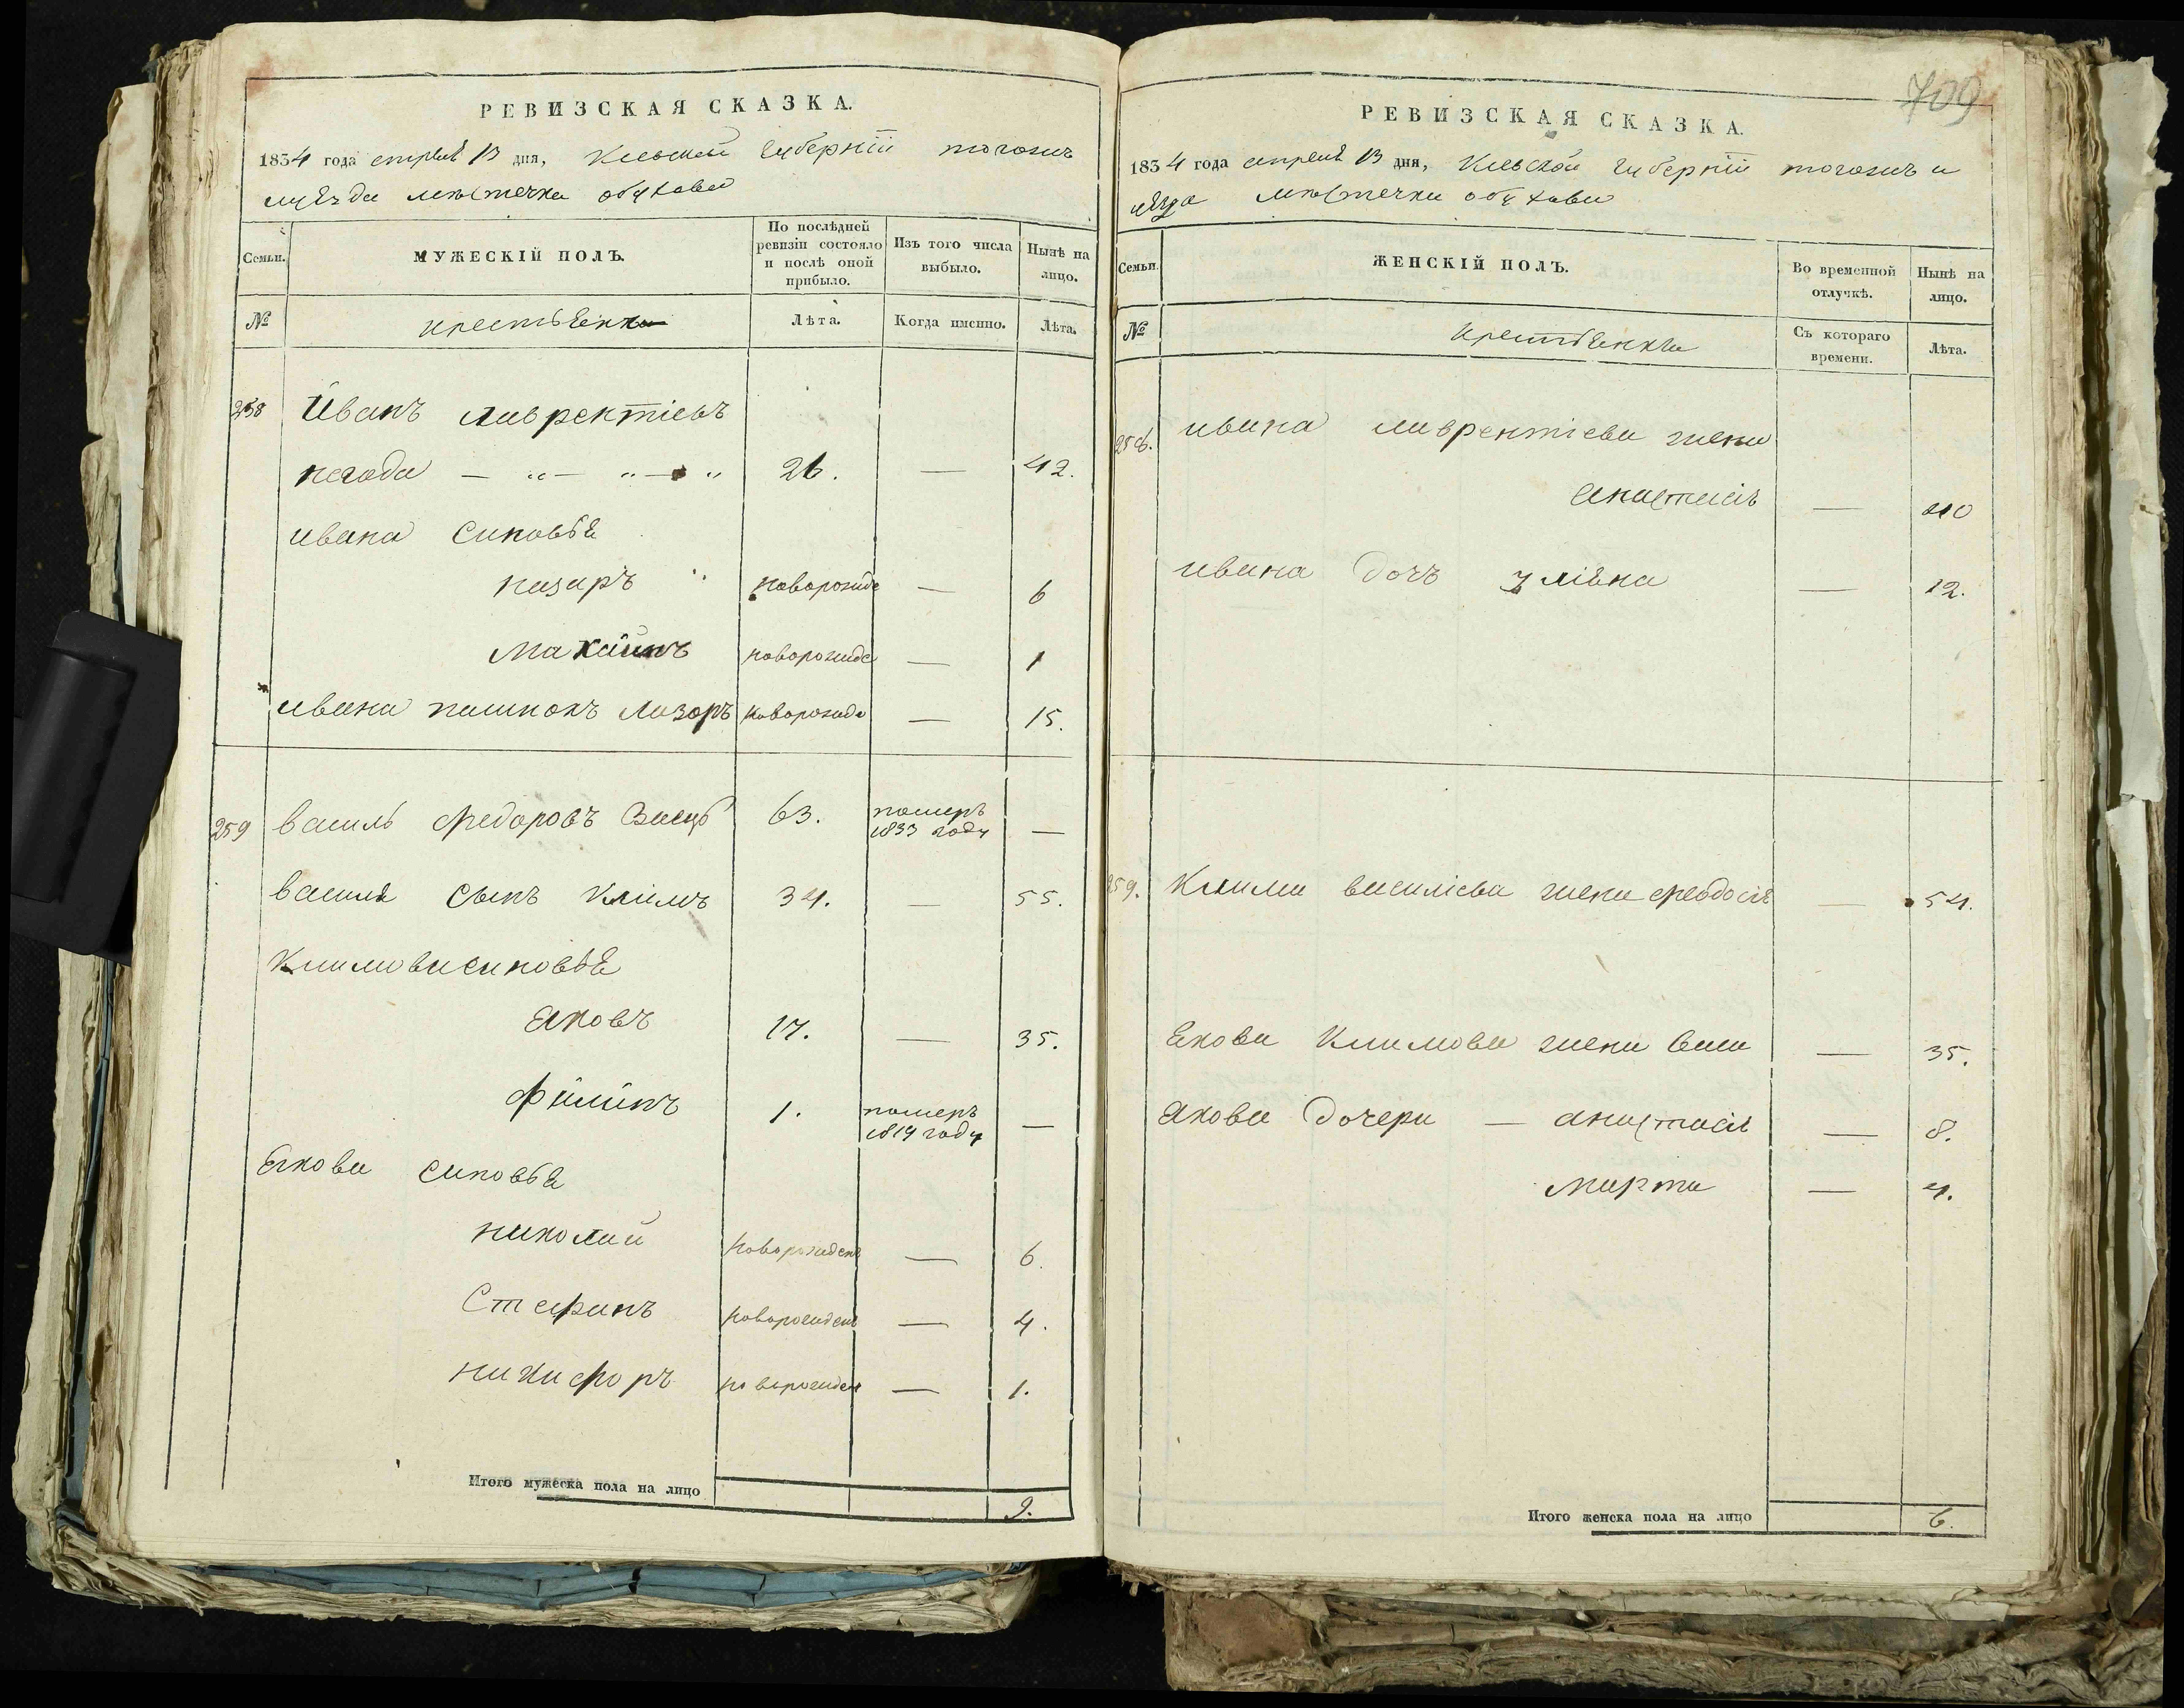 РЕВИЗСКАЯ СКАЗКА.
1834 года апреля 13 дня, Киевской Губерніи тогожъ
уѣзда местечка обухова
Семьи. МУЖЕСКІЙ ПОЛЪ. По послѣдней ревизіи состояло и послѣ оной прибыло. Изъ того числа выбыло. Нынѣ на лицо.
№ крестьяне Лѣта. Когда именно. Лѣта.
258 Иванъ лаврентіевъ
негода — „ — „ — „ 26. — 42.
ивана синовья
назаръ новорожде — 6
новорожде — 1
ивана лазоръ новорожде — 15.
259 василь федоровъ 63. померъ 1833 году —
василя сынъ климъ 34. — 55.
климови синовья
яковъ 17. — 35.
филипъ 1. померъ 1819 году —
якова синовья
николай новорожденъ — 6.
Стефанъ новорожден — 4.
никифоръ новорожден — 1.
Итого мужеска пола на лицо 9.
709
РЕВИЗСКАЯ СКАЗКА.
1834 года апреля 13 дня, Киевской Губерніи тогожъ у
уѣзда местечка обухова
Семьи. ЖЕНСКІЙ ПОЛЪ. Во временной отлучкѣ. Нынѣ на лицо.
№ крестьянки Съ котораго времени. Лѣта.
258. ивана лаврентіева жена
анастасія — 40
ивана дочъ уліяна — 12.
259. клима василіева жена феодосія — 54.
якова климова жена — 35.
якова дочери — анастасія — 8.
марта — 4.
Итого женска пола на лицо 6.